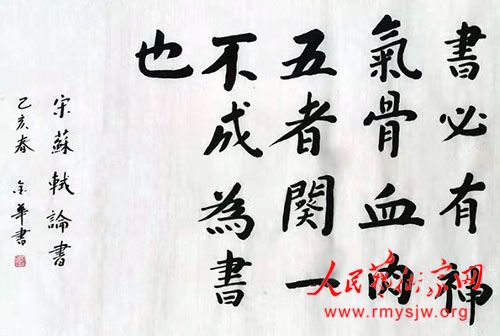 書必有神
氣骨血肉
五者闕一
不成為書
也
宋蘇軾論書
己亥春 金華書
人民藝術家网
www.rmysjw.org